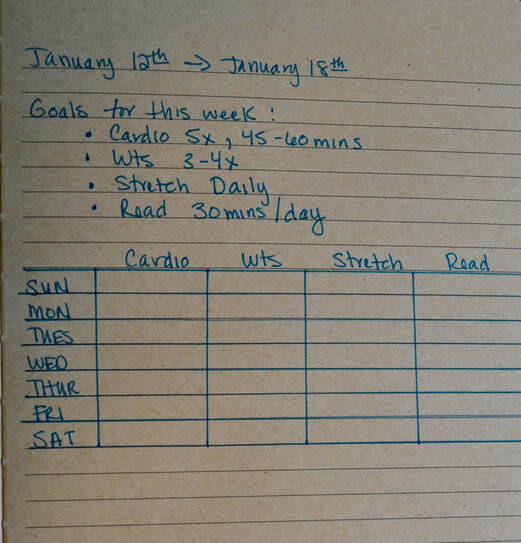 January 12th → January 18th
Goals for this week:
• Cardio 5x, 45-60mins
• Wts 3-4x
• Stretch Daily
• Read 30mins/day
Cardio Wts Stretch Read
SUN
MON
TUES
WED
THUR
FRI
SAT